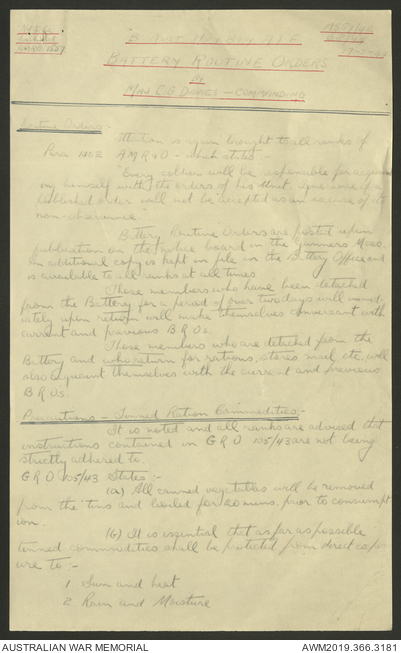 BATTERY ROUTINE ORDERS
BY
MAJ. C G DAVIES — COMMANDING
Routine Orders:-
Attention is again brought to all ranks of
Para A M R & O - which states -
"Every soldier will be responsible for acquaint
ing himself with the orders of his Unit. Ignorance of a
published order will not be accepted as an excuse of its
non-observance."
Battery Routine Orders are posted upon
publication on the notice board in the Gunners Mess.
An additional copy is kept in file in the Battery Office and
is available to all ranks at all times
Those members who have been detached
from the Battery for a period of over two days will immed-
iately upon return will make themselves conversant with
current and previous B R Os.
Those members who are detached from the
Battery and who return for rations, stores mail etc. will
also acquaint themselves with the current and previous
B R Os.
Precautions — Tinned Ration Commodities:-
It is noted and all ranks are advised that
instructions contained in G R O 105/43 are not being
strictly adhered to.
G R O 105/43 States :-
(a) All canned vegetables will be removed
from the tins and boiled for 20 mins. prior to consumpt
ion.
It is essential that as far as possible
tinned commodities shall be protected from direct expos
ure to :-
1 Sun and heat
2 Rain and Moisture
AUSTRALIAN WAR MEMORIAL
AWM2019.366.3181